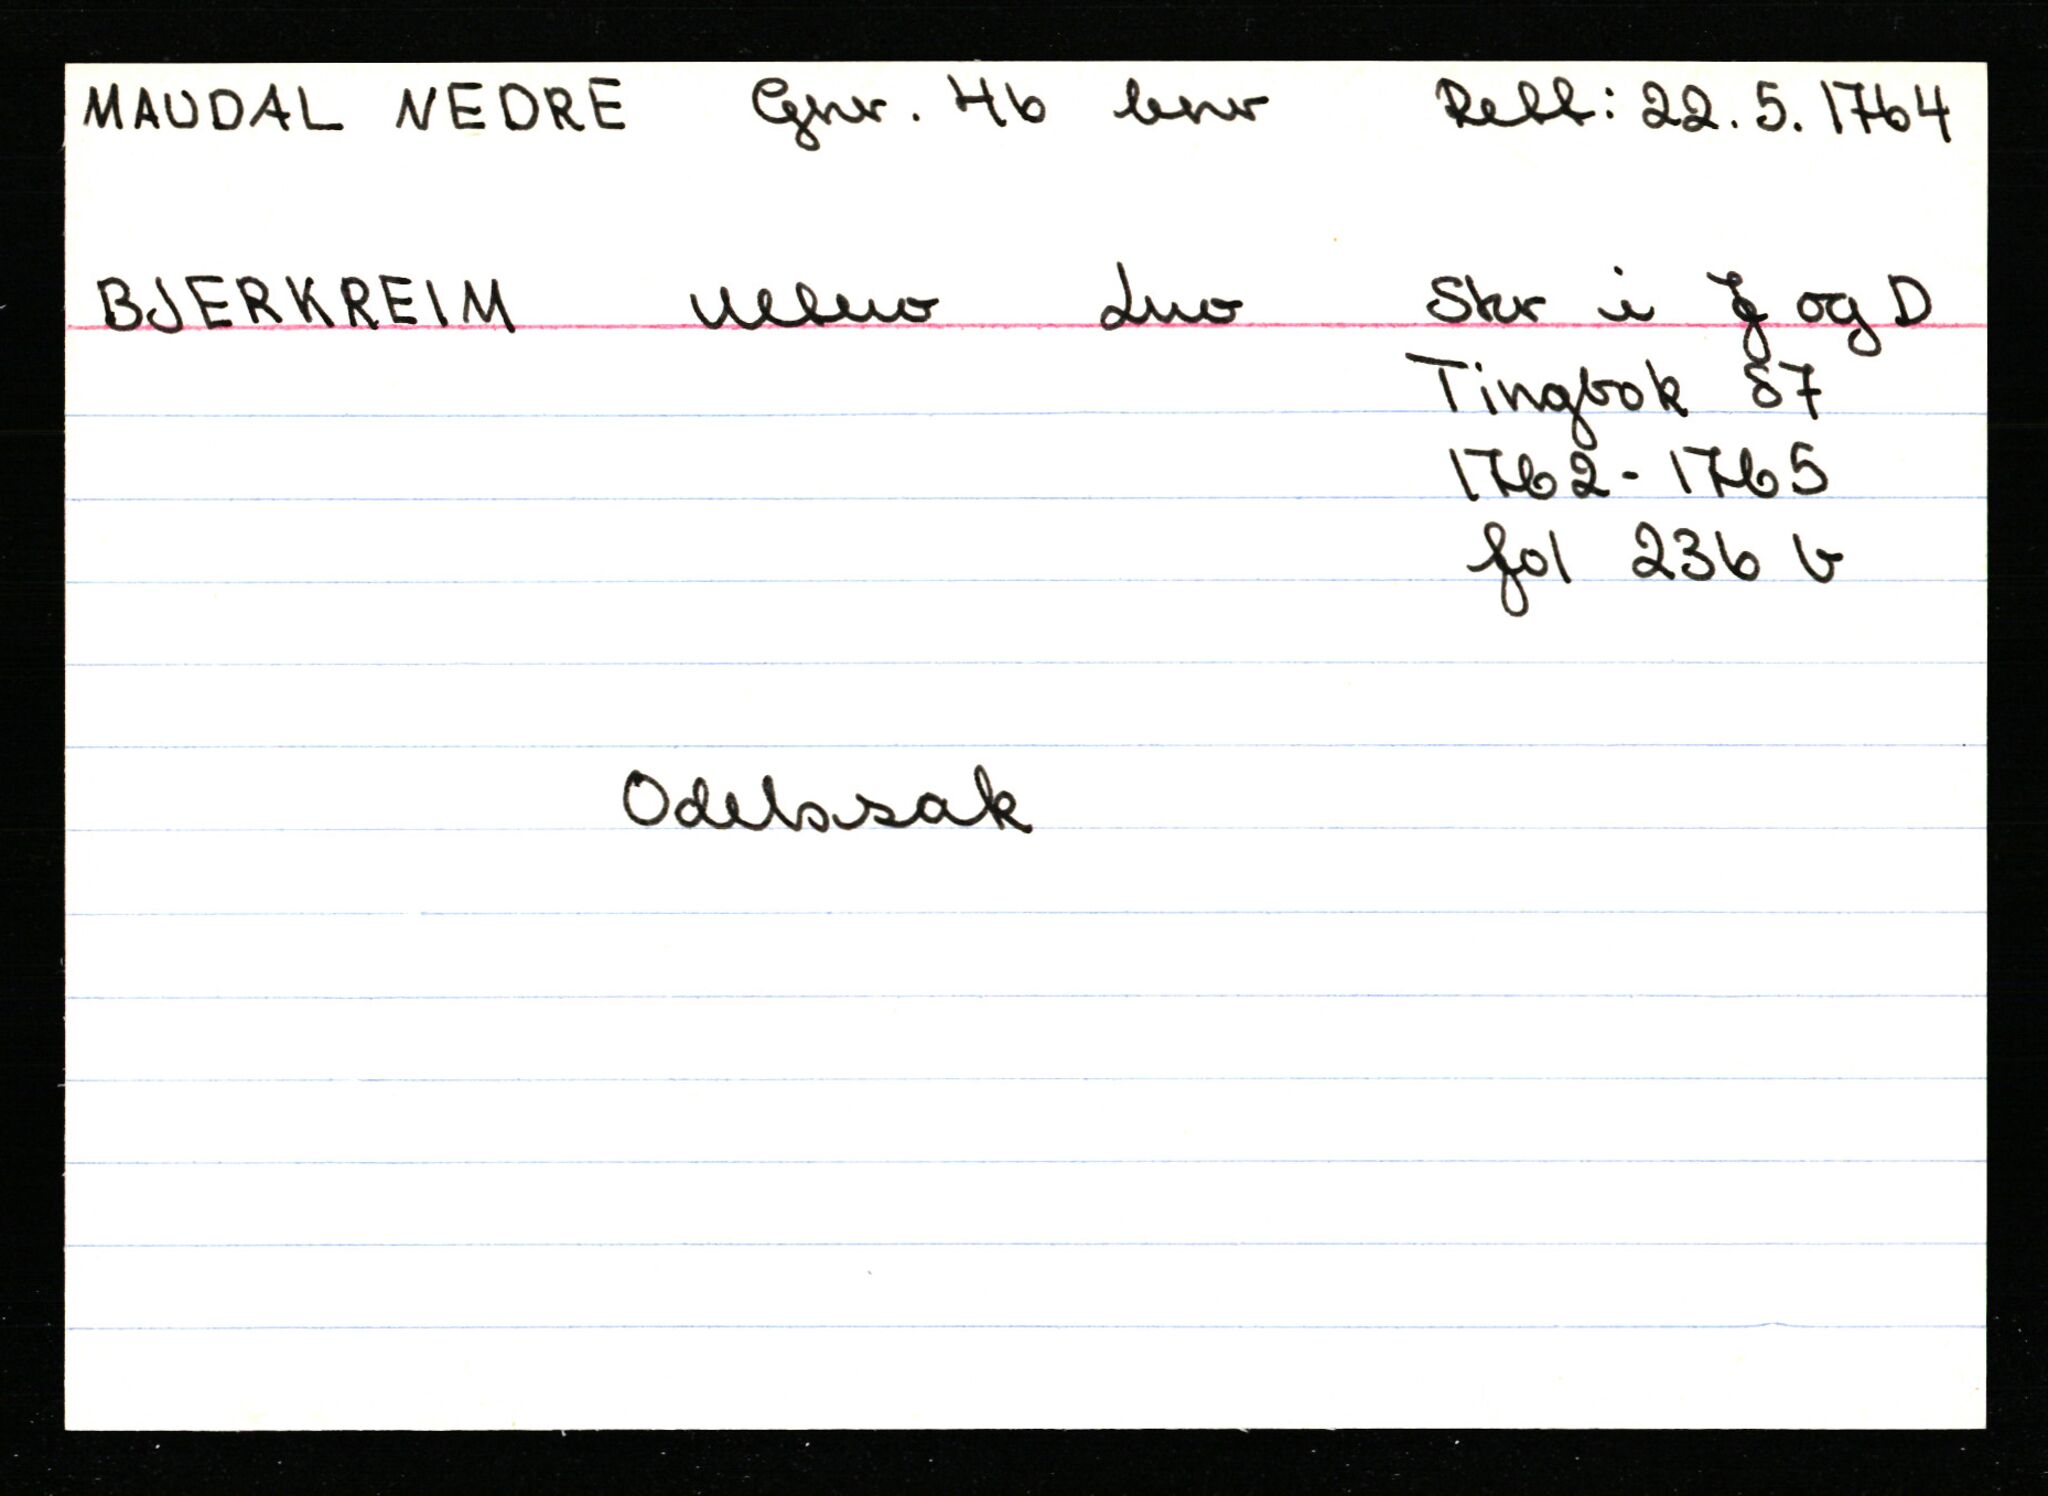 MAUDAL NEDRE Gnr. 46 bnr Rett: 22.5.1764
BJERKREIM Lno Skr i J og D
Tingbok 87
1762-1765
fol 236 b
Odelssak